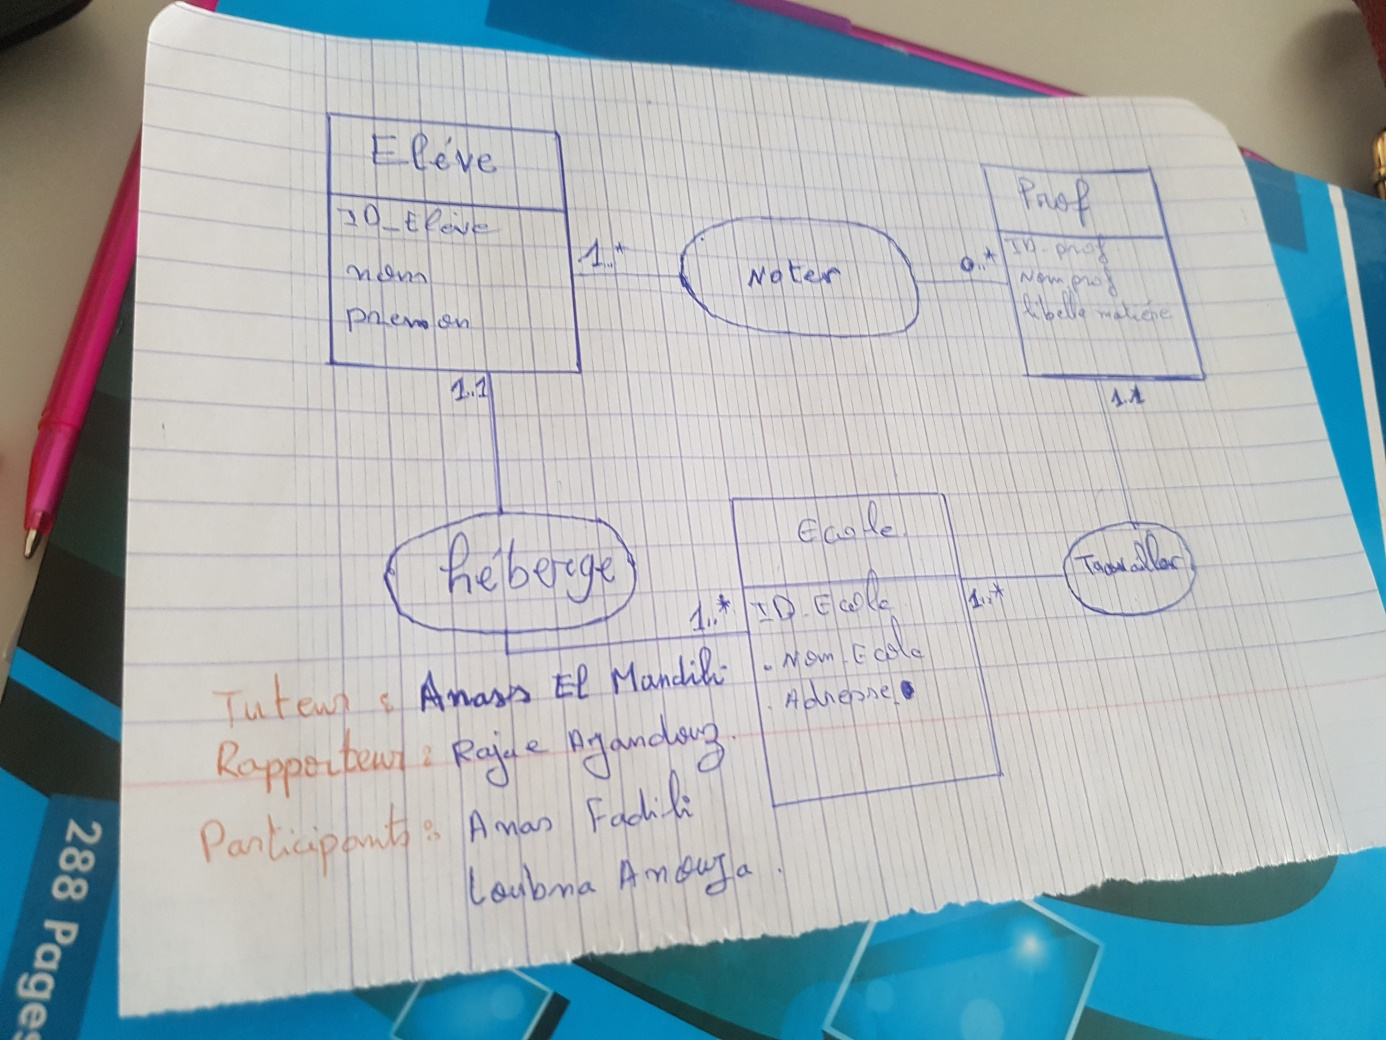 Eléve
ID_Eléve
nom
prenom
1..*
Noter
0..*
Prof
ID-prof
Nom prof
libelle matiére
1.1
1.1
héberge
1..*
Ecole
ID-Ecole
. Nom-Ecole
. Adresse
1..*
Travailler
Tuteur : Anass El Mandili
Rapporteur :
Participants : Anas Fadili
Loubna Anouja.
288 Pages